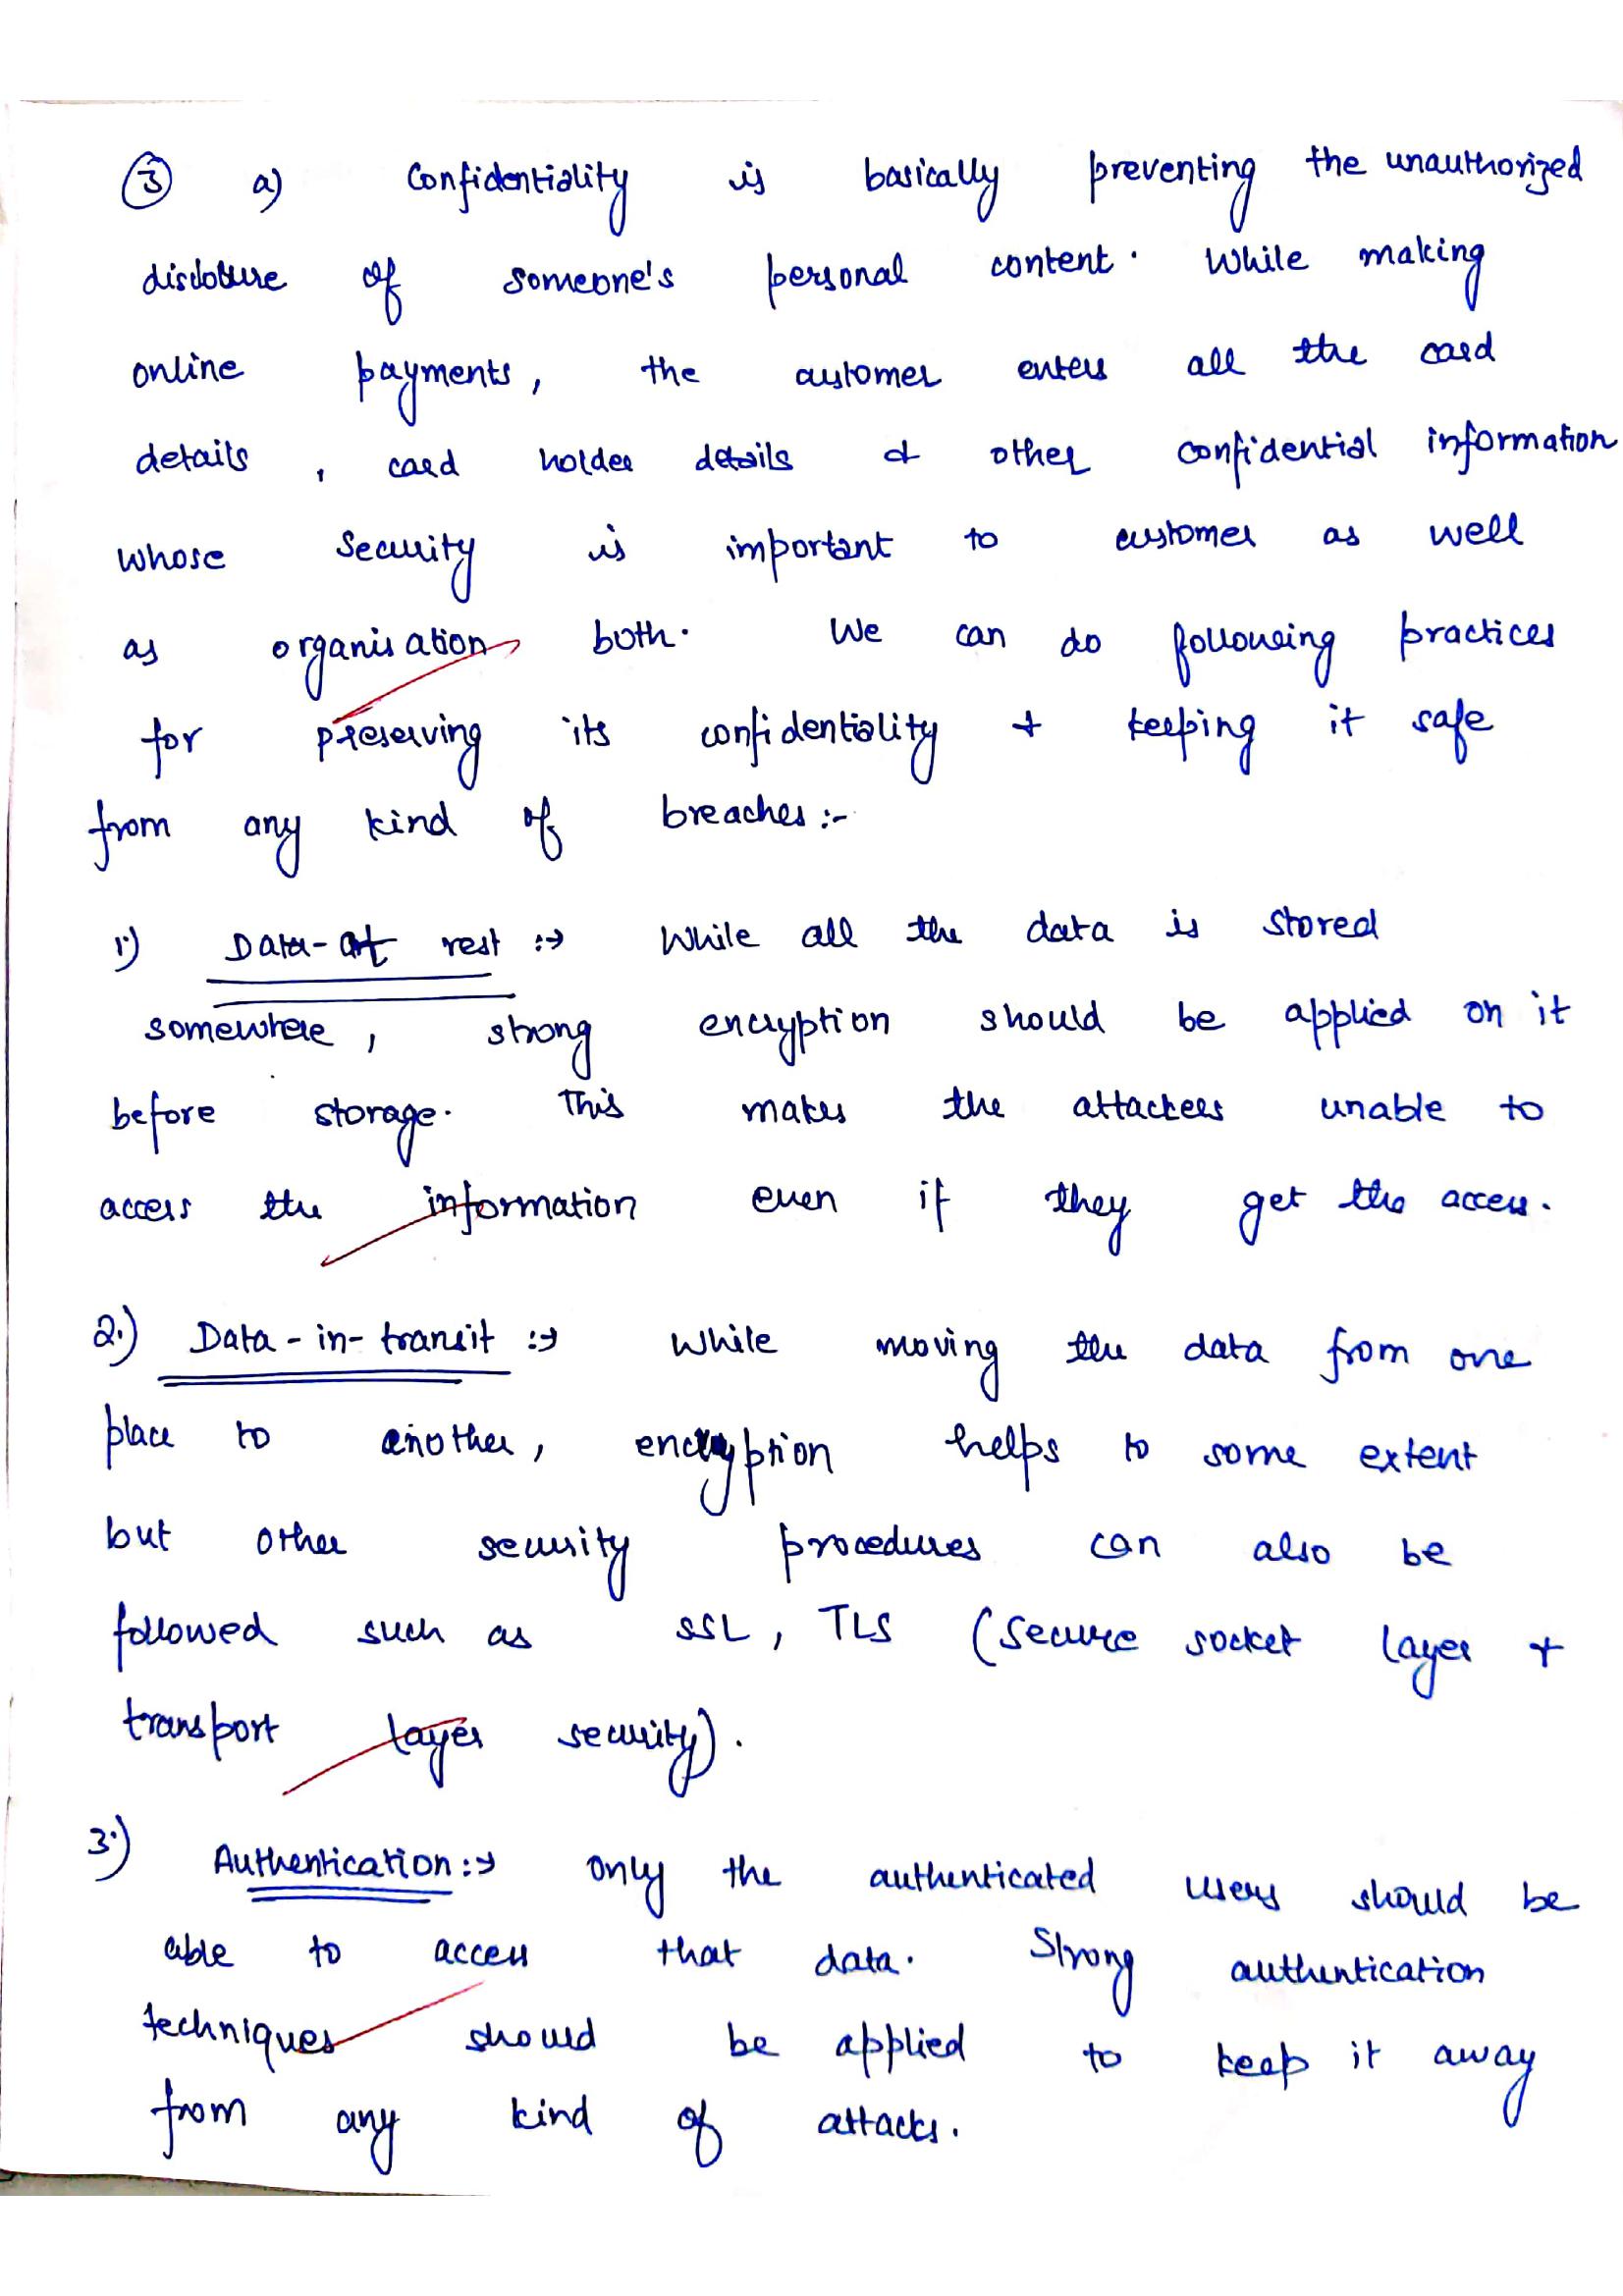 ③ a) Confidentiality is basically preventing the unauthorized
disclosure of someone's personal content. While making
online payments, the customer enters all the card
details, card holder details & other confidential information
whose security is important to customer as well
as organisation both. We can do following practices
for preserving its confidentiality + keeping it safe
from any kind of breaches :-
1) Data-at rest :→ While all the data is stored
somewhere, strong encryption should be applied on it
before storage. This makes the attackers unable to
access the information even if they get the access.
2.) Data-in-transit :→ While moving the data from one
place to another, encryption helps to some extent
but other security procedures can also be
followed such as SSL, TLS (Secure socket layer +
transport layer security).
3.) Authentication :→ Only the authenticated users should be
able to access that data. Strong authentication
techniques should be applied to keep it away
from any kind of attacks.